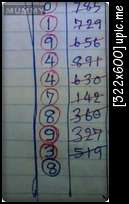 MUMMY
0 785
1 729
9 656
4 891
4 630
7 142
8 360
9 327
3 519
8
[322x600] upic.me